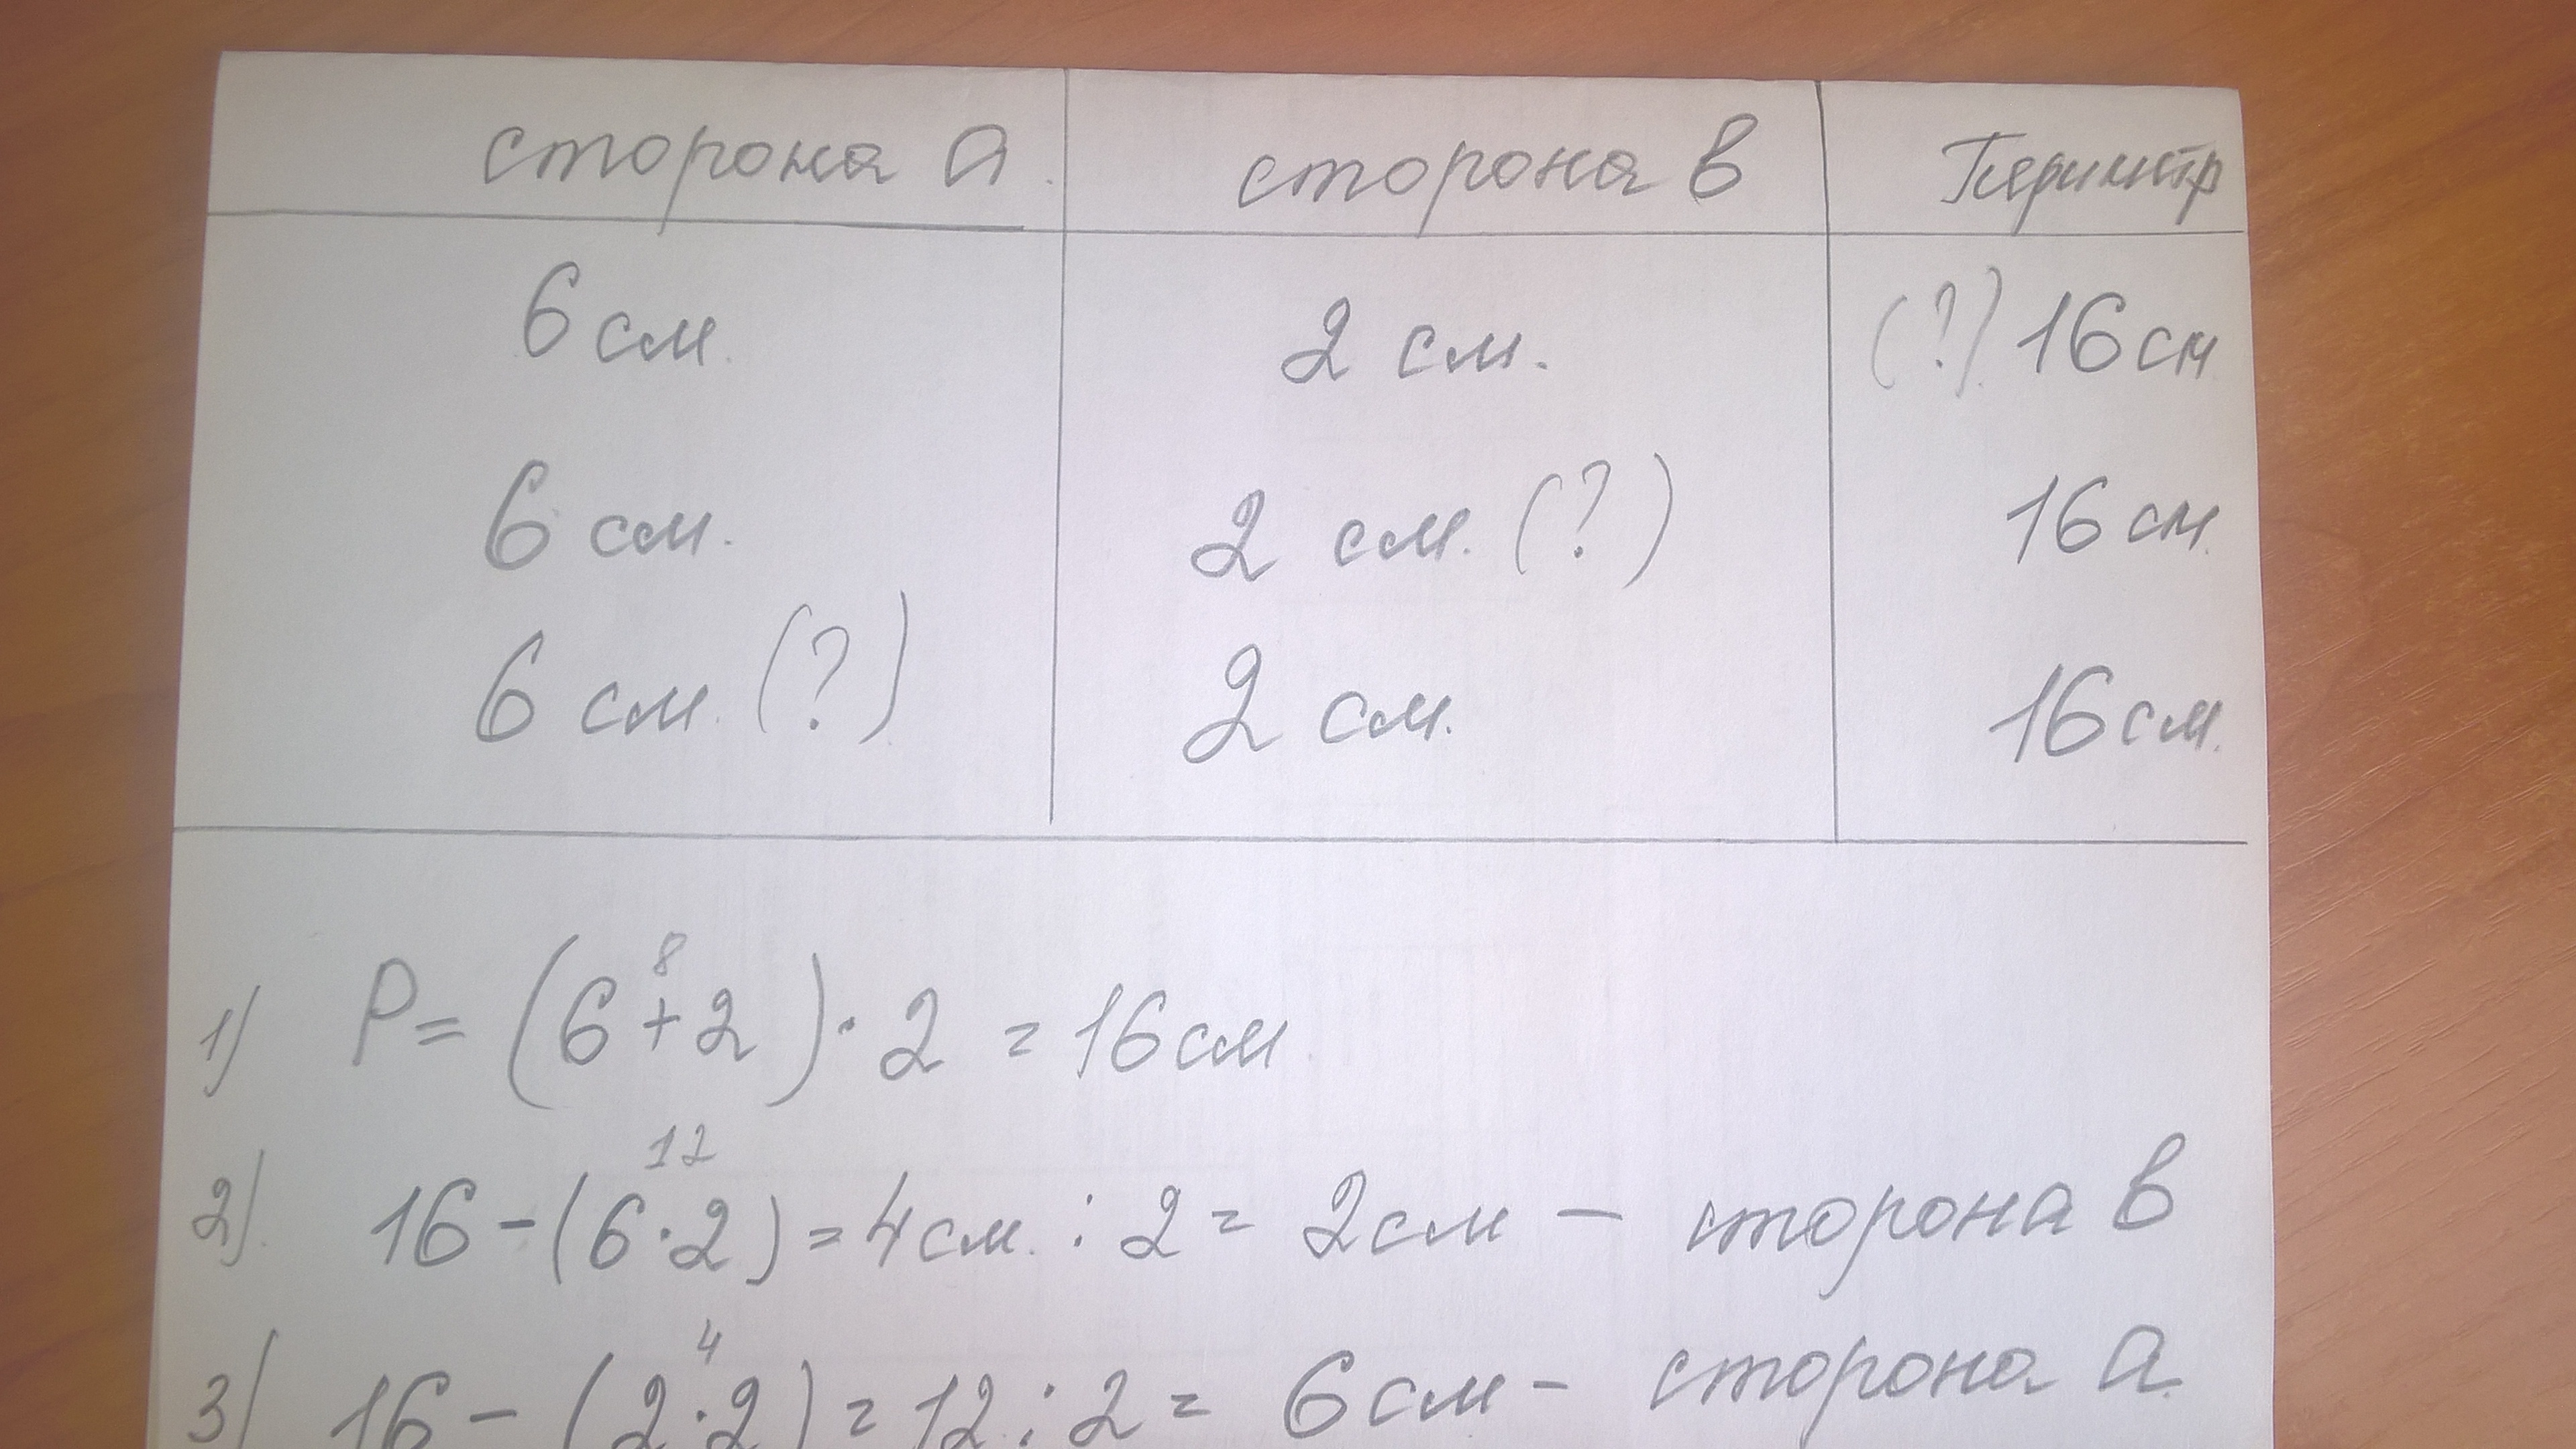 сторона а сторона в Периметр
6 см. 2 см. (?) 16 см
6 см. 2 см. (?) 16 см.
6 см. (?) 2 см. 16 см.
8
1) P = (6 + 2) · 2 = 16 см
12
2) 16 - (6 · 2) = 4 см. : 2 = 2 см - сторона в
4
3) 16 - (2 · 2) = 12 : 2 = 6 см - сторона а